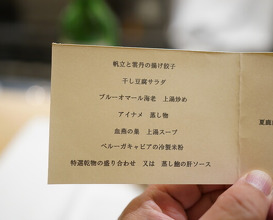 帆立と雲丹の揚げ餃子
干し豆腐サラダ
ブルーオマール海老　上湯炒め
アイナメ　蒸し物
血燕の巣　上湯スープ
ベルーガキャビアの冷製米粉
特選乾物の盛り合わせ　又は　蒸し鮑の肝ソース